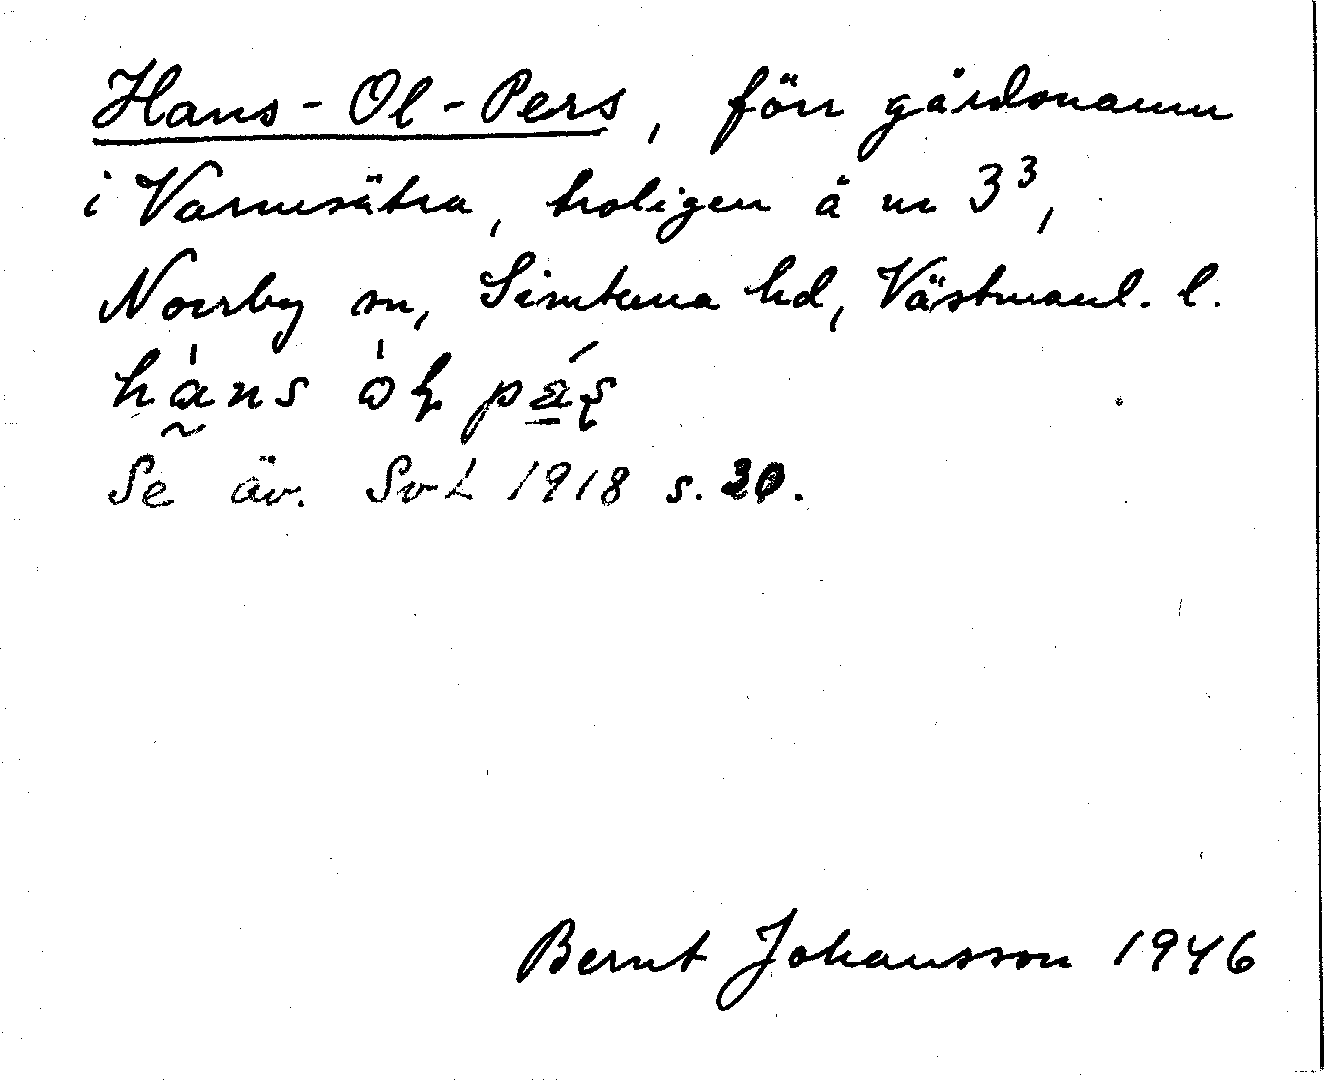 Hans-Ol-Pers, förr gårdsnamn
i Varmsätra, troligen å nr 3³,
Norrby sn, Simtuna hd, Västmanl. l.
Se äv. SvL 1918 s. 20.
Bernt Johansson 1946